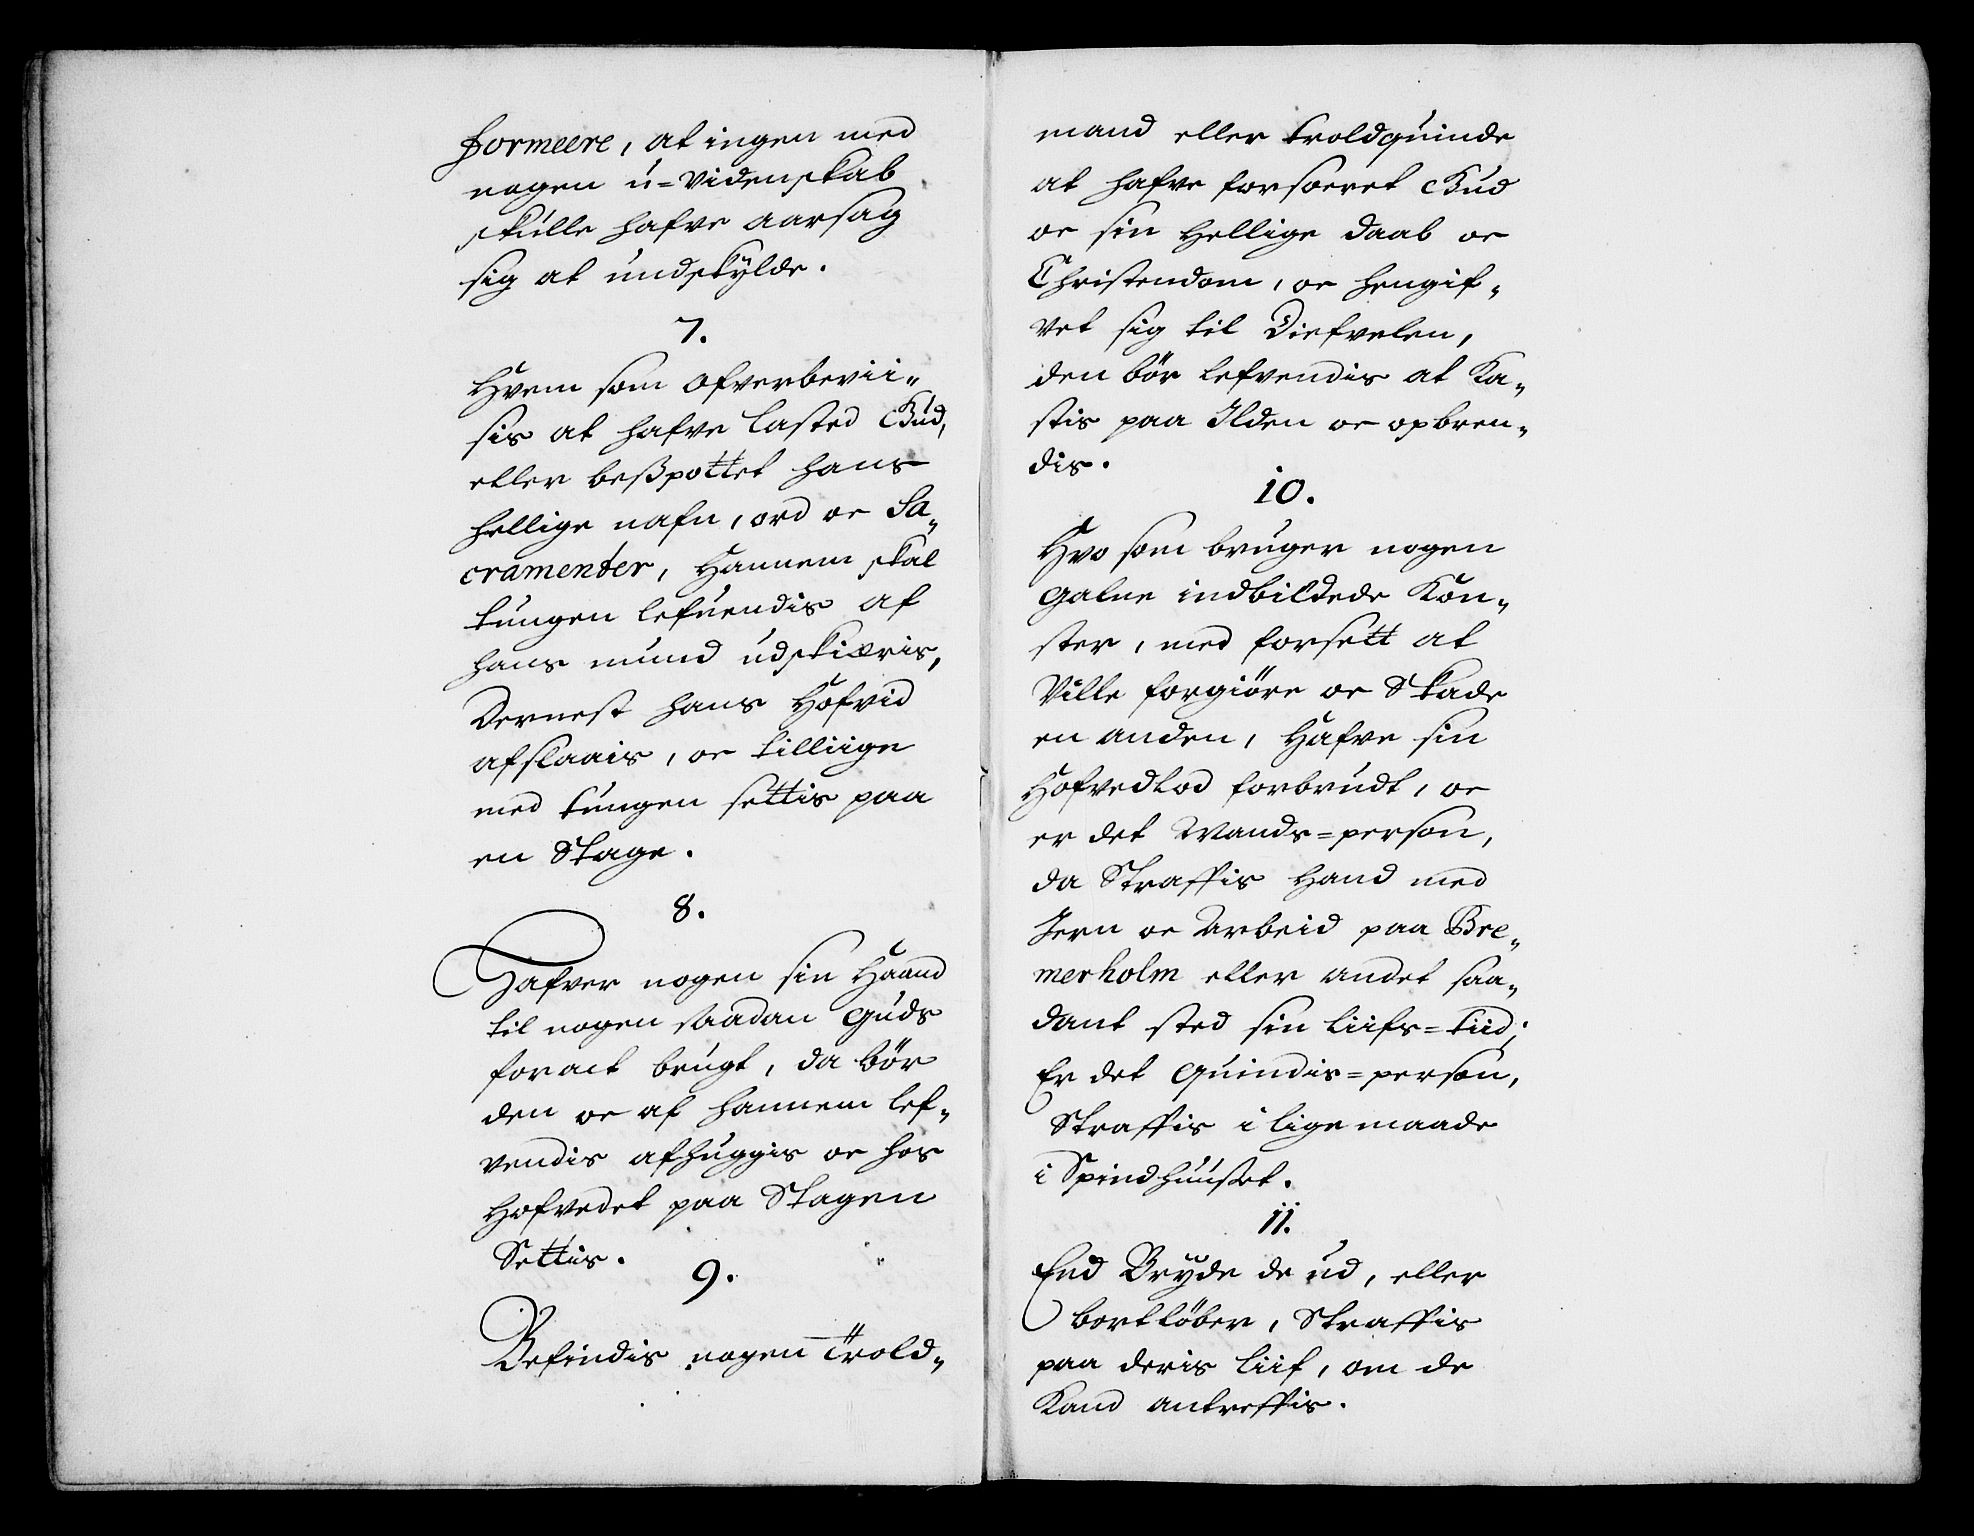 formeere, at ingen med
nogen u=videnskab
skulle hafve aarsag
sig at undskylde.
7.
Hvem som ofverbevii„
sis at hafve lasted Gud,
eller beßpottet hans
hellige nafn, ord oc Sa„
cramenter, Hannem skal
tungen lefuendis af
hans mund udskiæris,
Dernest hans Hofvid
afslaais, oc tilliige
med tungen settis paa
en Stage.
8.
Hafver nogen sin Haand
til nogen saadan Guds
foract brugt, da bör
den oc af hannem lef„
vendis afhuggis oc hos
Hofvedet paa Stagen
Settis.
9.
Befindis nogen Trold„
mand eller troldquinde
at hafve forsoeret Gud
oc sin Hellige daab oc
Christendom, oc hengif„
vet sig til Diefvelen,
den bör lefvendis at Ka„
stis paa Ilden oc opbren„
dis.
10.
Hvo som bruger nogen
galne indbildede Kon„
ster, med forsett at
Ville forgiöre oc Skade
en anden, Hafve sin
Hofvedlod forbrudt, oc
er det Mands=person,
da Straffis Hand med
Jern oc Arbeid paa Bre„
merholm eller andet saa„
dant sted sin Liifs=tiid;
Er det Quindis=person,
Straffis i lige maade
i Spindhuuset.
11.
End Bryde de ud, eller
bortlöber, Straffis
paa deris Liif, om de
Kand antreffis.